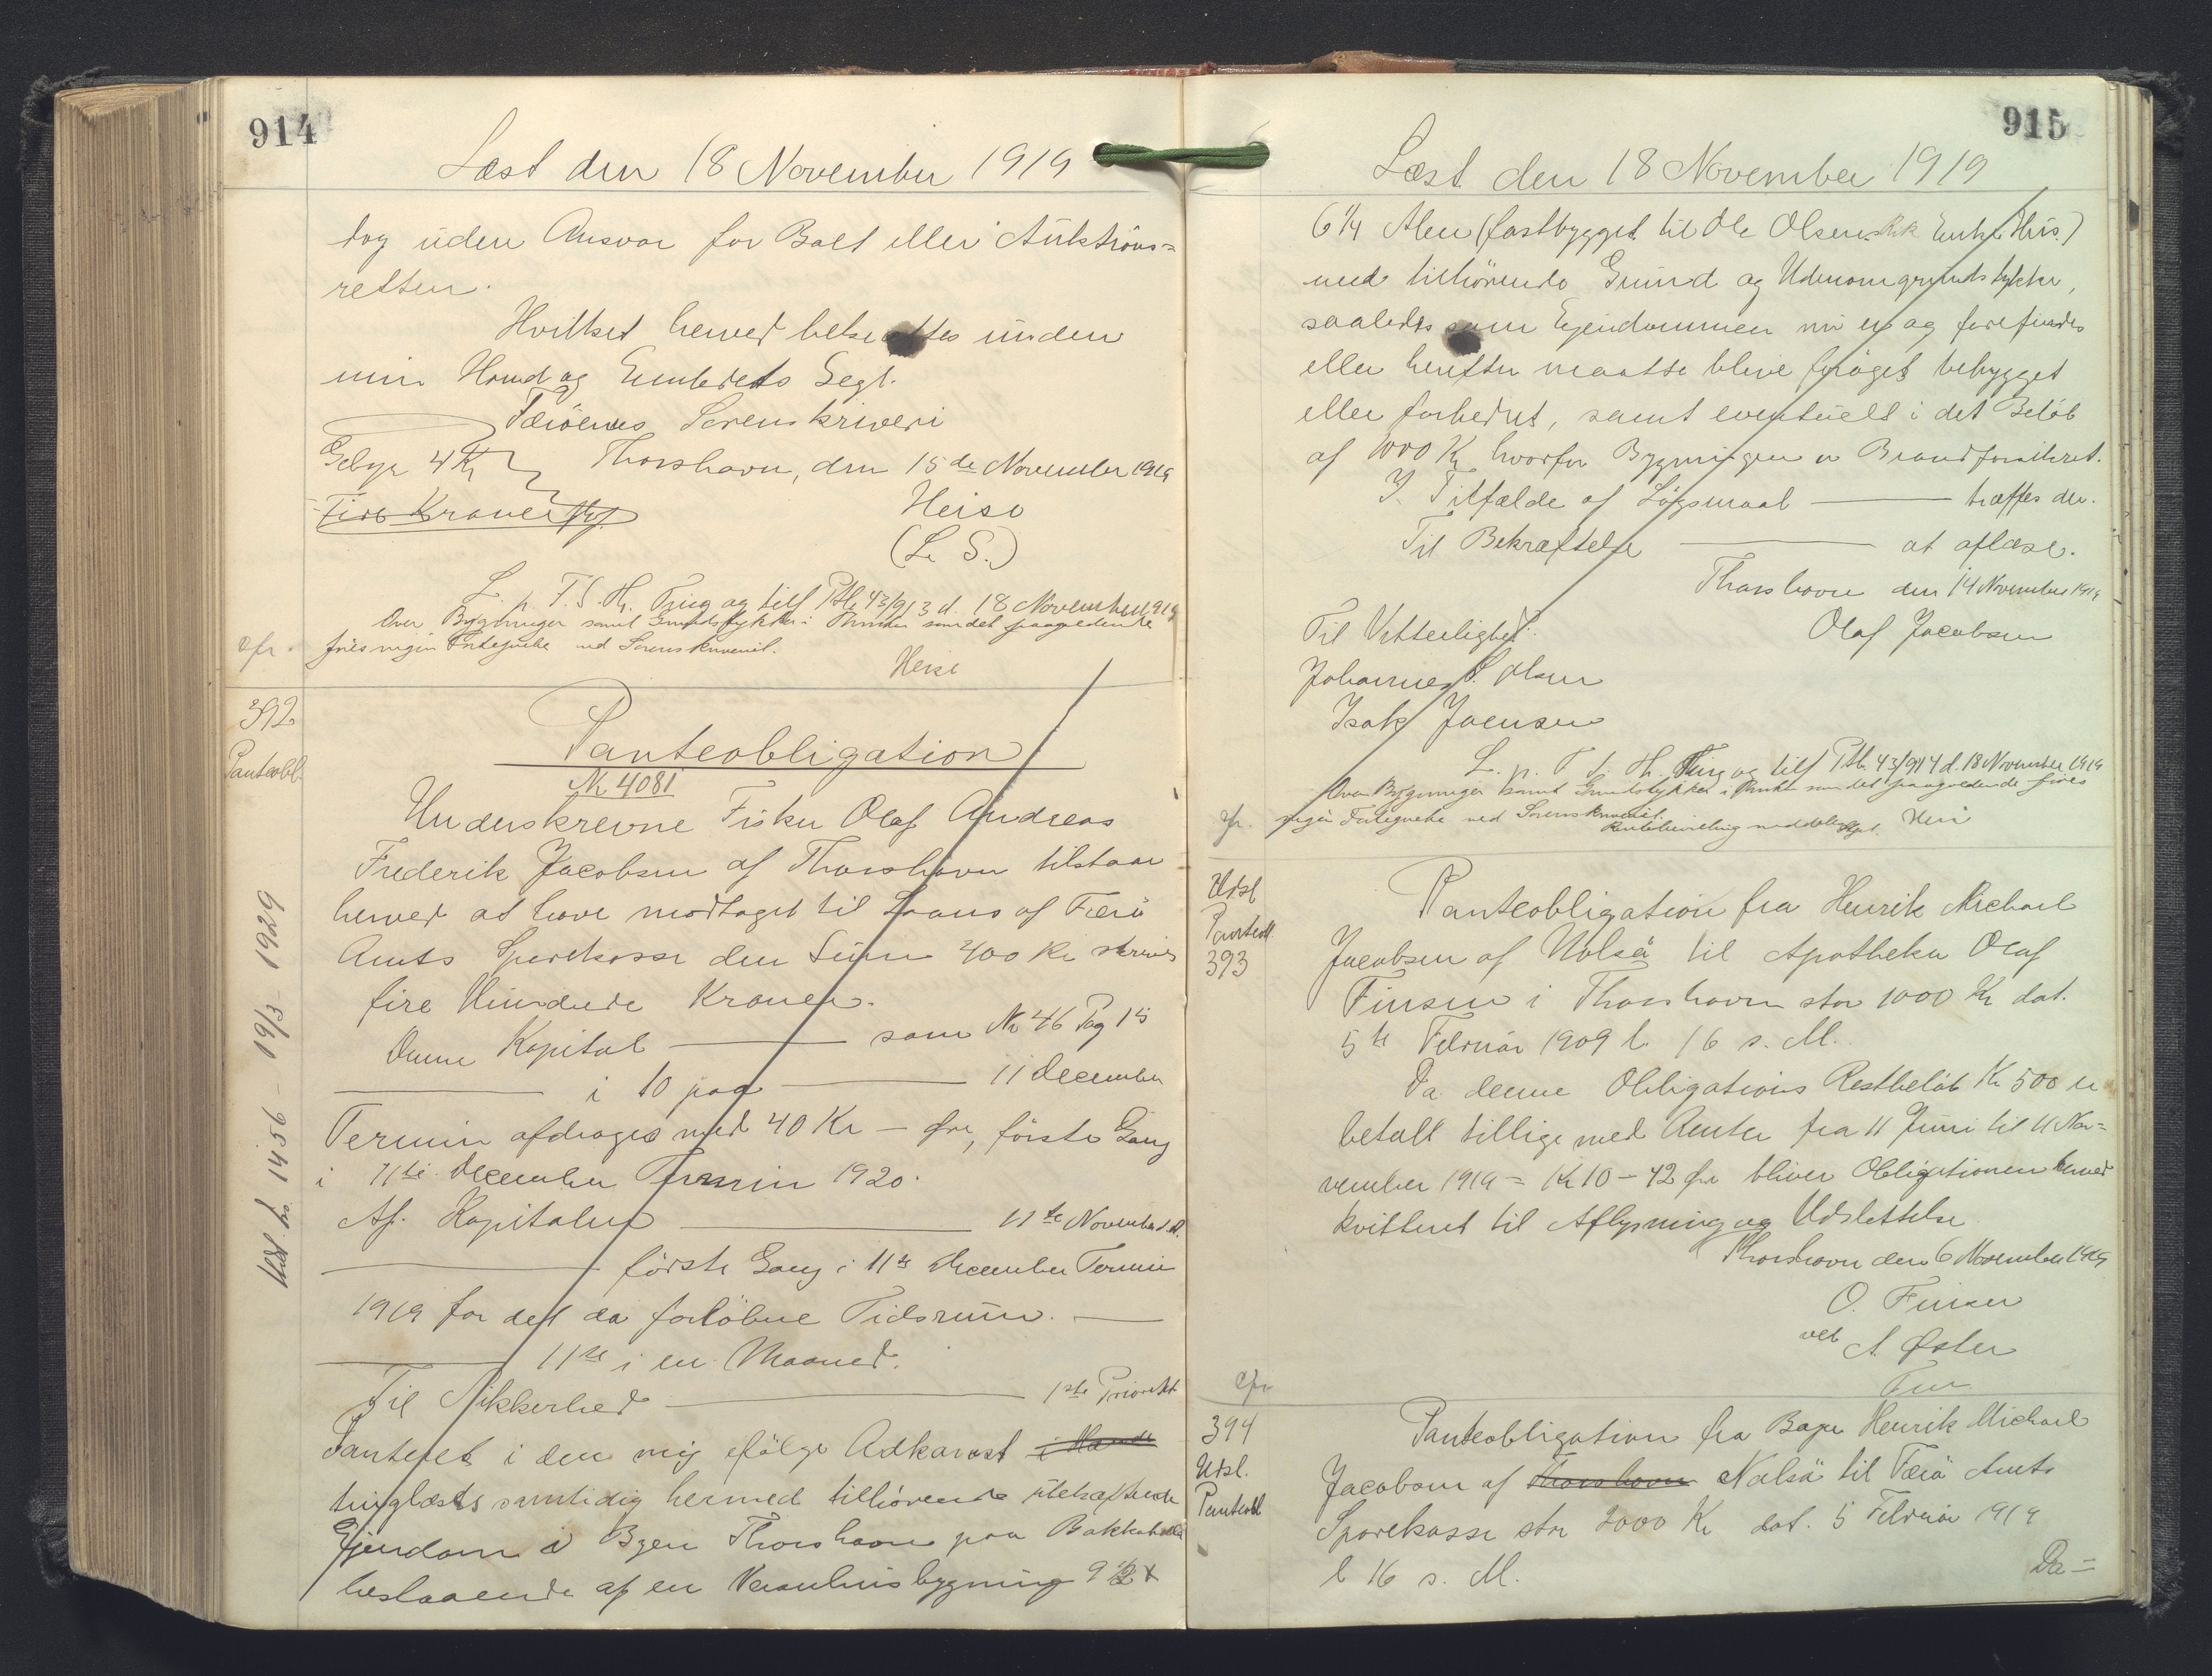 914
Læst den 18 November 1919
dog uden Ansvar for Salt eller Auktions=
retten.
Hvilket herved bekræftes under
min Haand og Embedets Segl.
Færöernes Sorenskriveri
Gebyr 4 Kr Thorshavn, den 15de November 1919
Fire Kroner Heise
(L. S.)
L. p. T. S. Hr. Ting og tilf Ptb. 43/913 d. 18 November 1919
Over Bygninger samt Grundstykker i som det paagældende
cfr. föres ingen Fortegnelse ved Sorenskriveriet.
Heise
392
Panteobl.
Panteobligation
No 4081
Underskrevne Fisker Olaf Andreas
Frederik Jacobsen af Thorshavn tilstaar
herved at have modtaget til Laans af Færö
Amts Sparekasse den Sum 400 Kr skriver
fire Hundrede Kroner.
Denne Kapital som No 46 Pag 15
i 10 paa 11 December
Termin afdrages med 40 Kr — Øre, förste Gang
i 11te December Termin 1920.
Af Kapitalen 11te November d. A.
förste Gang i 11te December Termin
1919 for det da forlöbne Tidsrum.
11te i en Maaned.
Til Sikkerhed 1ste Prioritet
Panteret i den mig ifölge Adkomst i Hænde
tinglæsts samtidig hermed tilhörende
Ejendom i Byen Thorshavn paa
bestaaende af en Vaaanhusbygning 9 1/2 x
Udsl. 1456 — 19/3 1929
915
Læst den 18 November 1919
6 1/4 Alen (fastbygget til Ole Olsens Enkes Hus)
med tilhörende Grund og Udenomsgrundstykke,
saaledes som Ejendommen nu er og forefindes
eller herefter maatte blive foröget bebygget
eller forbedret, samt eventuelt i det Belöb
af 1000 Kr hvorfor Bygningen er Brandforsikret.
I Tilfælde af Lögsmaal træffes der.
Til Bekræftelse at aflæse.
Thorshavn den 14 November 1919
Til Vitterlighed: Olaf Jacobsen
Johannes S. Olsen
Isak Joensen
L. p. T. S. Hr. Ting og tilf Ptb. 43/914 d. 18 November 1919
Over Bygninger samt Grundstykker i som det paagældende föres
cfr. ingen Fortegnelse ved Sorenskriveriet.
Heise
Udsl
Panteobl
393
Panteobligation fra Henrik Michael
Jacobsen af Nolsö til Apotheker Olaf
Finsen i Thorshavn stor 1000 Kr dat.
5te Februar 1909 l. 16 s. M.
Da denne Obligations Restbelöb Kr 500 er
betalt tillige med Renter fra 11 Juni til 11 No=
vember 1919 = Kr 10 — 42 Øre bliver Obligationen herved
kvitteret til Aflysning og Udslettelse
Thorshavn den 6 November 1919
O. Finsen
ved A. Øster
cfr.
394
Udsl.
Panteobl
Panteobligation fra Henrik Michael
Jacobsen af Thorshavn Nolsö til Færö Amts
Sparekasse stor 2000 Kr dat. 5 Februar 1919
l 16 s. M.
Da=